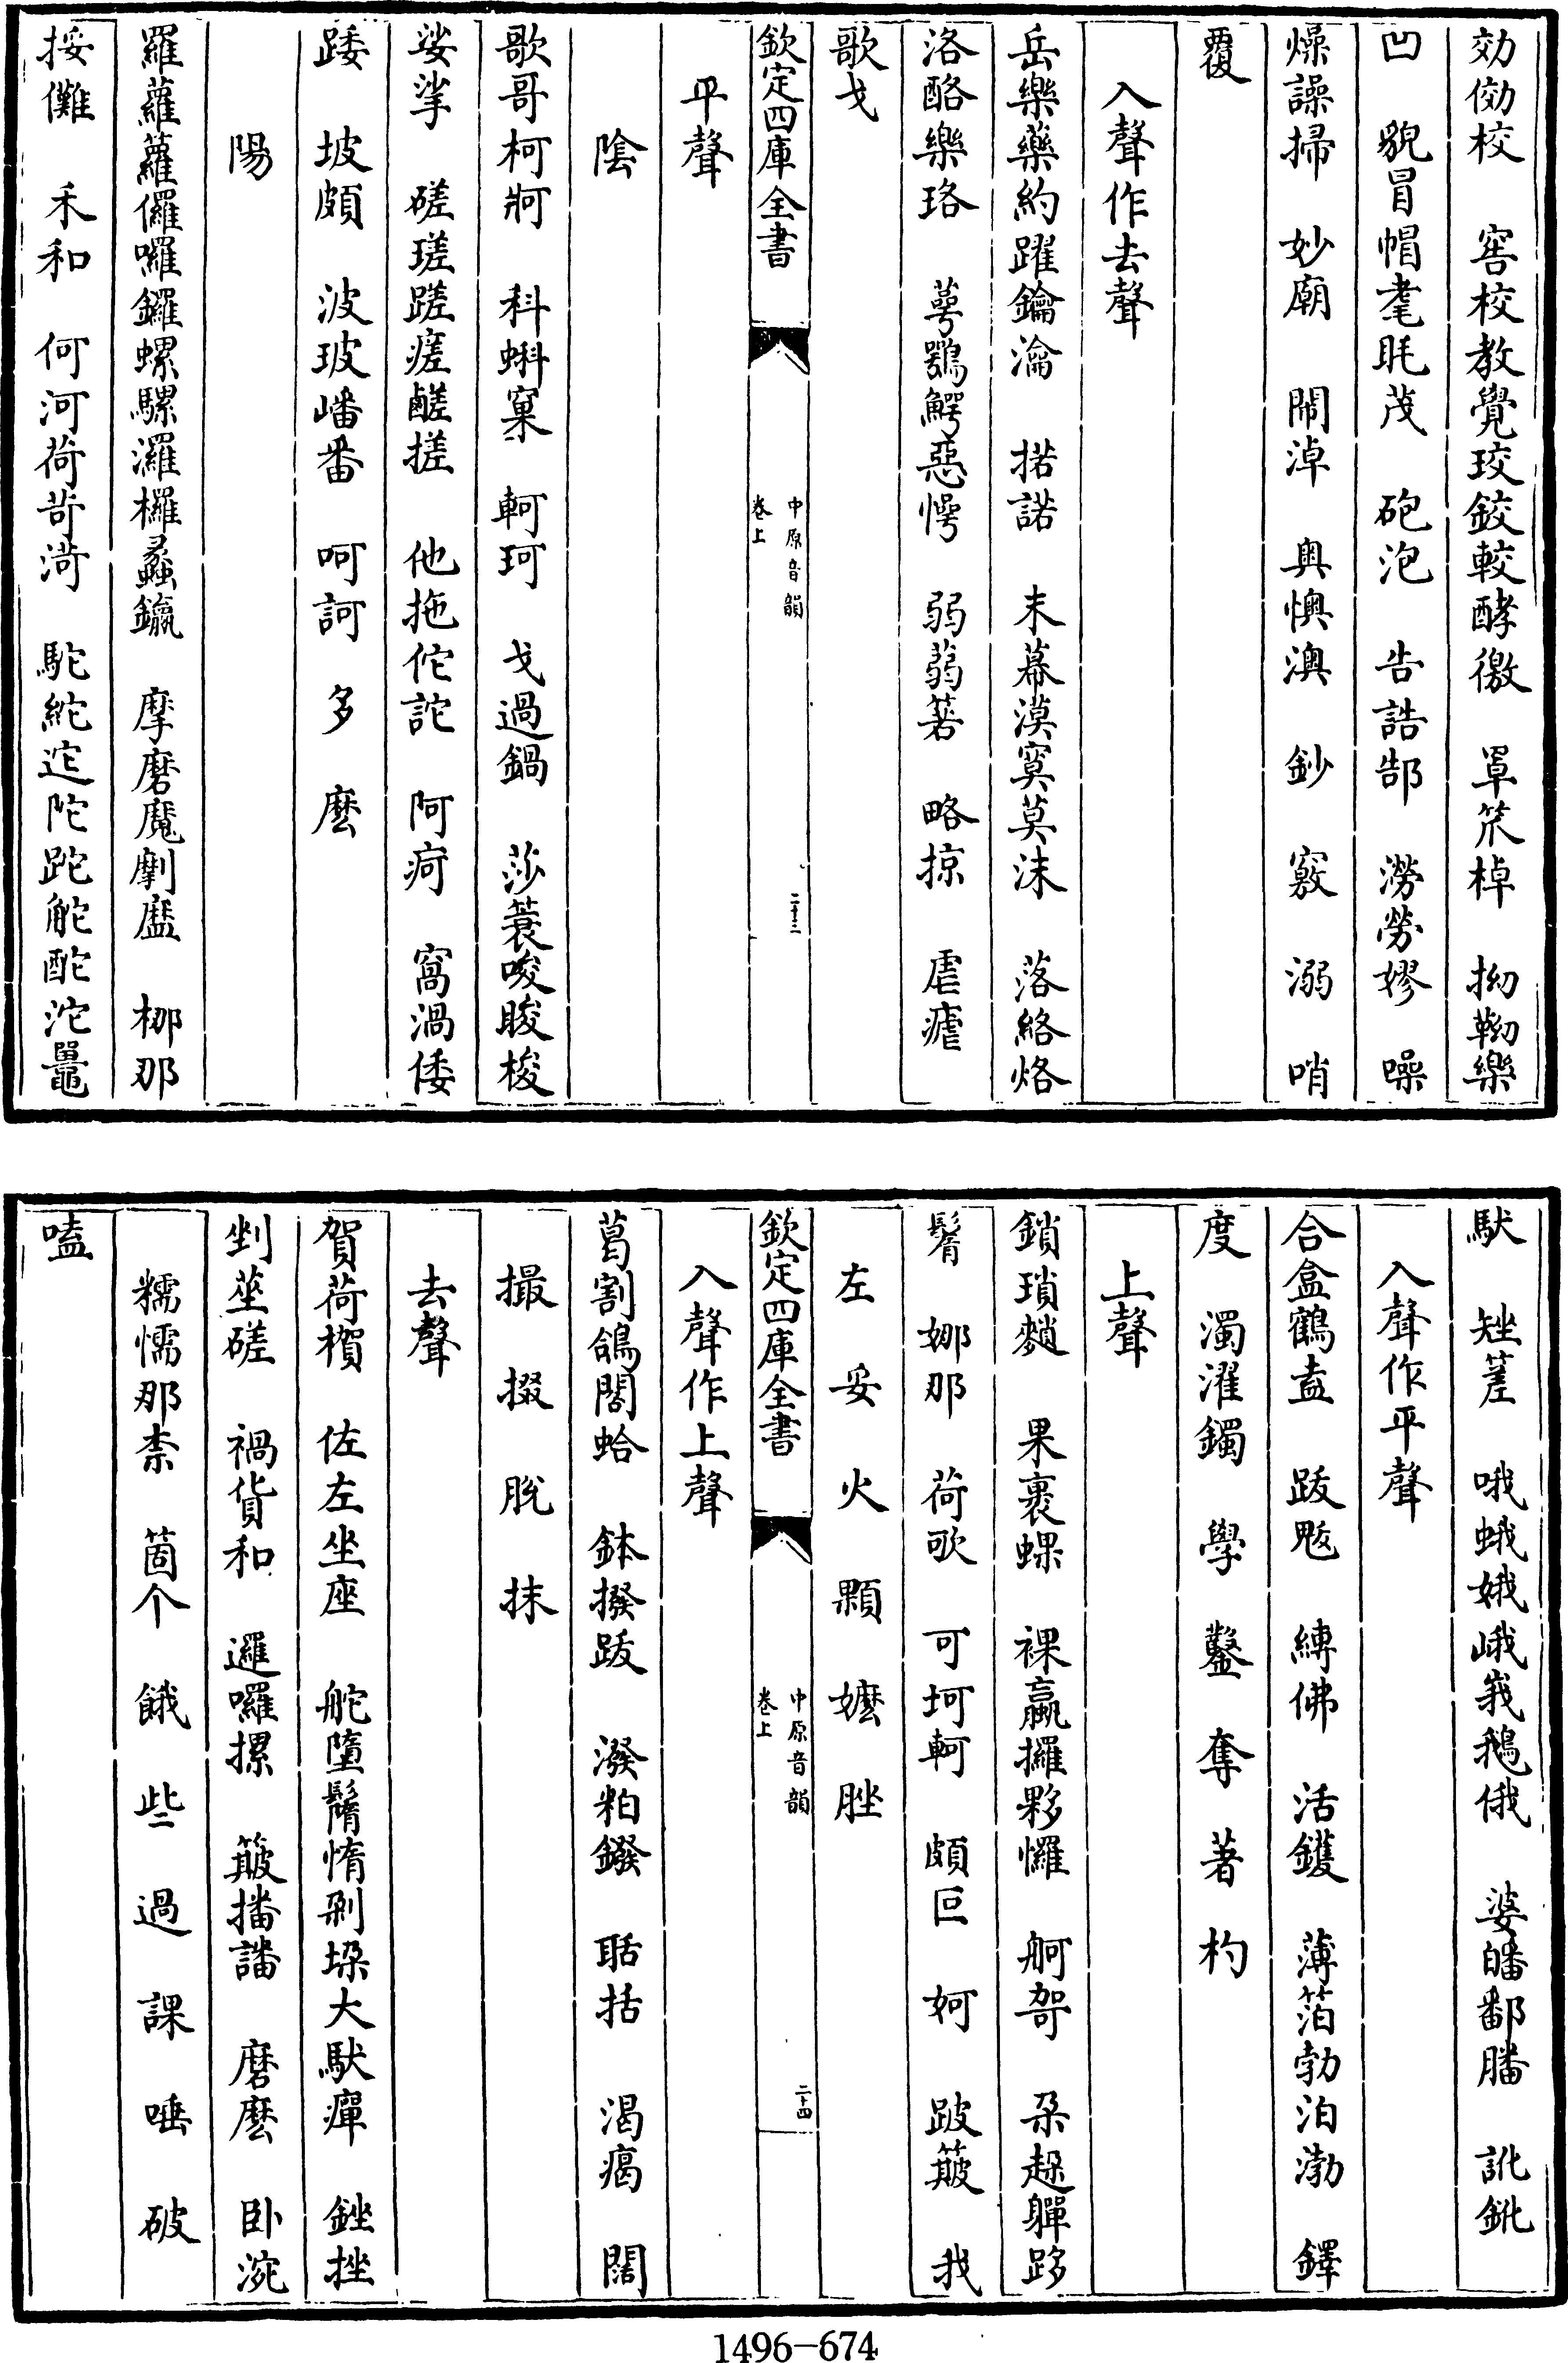 効傚校　窖校教覺珓鉸較酵徼　罩笊棹　拗靿樂
凹　貌冒帽耄眊茂　砲泡　告誥郜　澇勞嫪　噪
燥譟掃　妙廟　鬧淖　奥懊澳　鈔　竅　溺　哨
覆
入聲作去聲
岳樂藥約躍鑰瀹　掿諾　末幕漠寞莫沫　落絡烙
洛酪樂珞　萼鶚鰐惡愕　弱蒻箬　略掠　虐瘧
歌戈
欽定四庫全書　中原音韻　卷上　二十三
平聲
陰
歌哥柯牁　科蝌窠　軻珂　戈過鍋　莎蓑唆睃梭
娑挲　磋瑳蹉瘥醝搓　他拖佗詑　阿疴　窩渦倭
踒　坡頗　波玻嶓番　呵訶　多　麽
陽
羅蘿蘿儸囉鑼螺騾灑欏蠡鑹　摩磨魔劘䃺　挪那
挼儺　禾和　何河荷苛渮　駝紽迱陀跎舵酡沱鼉
馱　矬䔟　哦蛾娥峨莪鵝俄　婆皤鄱膰　訛鈋
入聲作平聲
合盒鶴盍　跋魃　縛佛　活鑊　薄箔勃泊渤　鐸
度　濁濯鐲　學　鑿　奪　著　杓
上聲
鎖瑣䵀　果裹蜾　裸臝攞夥㦬　舸哿　朶趓嚲跢
鬌　娜那　荷歌　可坷軻　頗叵　妸　跛簸　我
左　妥　火　顆　嬤　脞
欽定四庫全書　中原音韻　卷上　二十四
入聲作上聲
葛割鴿閣蛤　鉢撥跋　潑粕鏺　聒括　渴瘑　闊
撮　掇　脫　抹
去聲
賀荷㰤　佐左坐座　舵墮鬌惰剁垜大馱癉　銼挫
剉莝磋　禍貨和　邏囉摞　簸播譒　磨麽　卧涴
糯懦那柰　箇个　餓　些　過　課　唾　破
嗑
1496-674